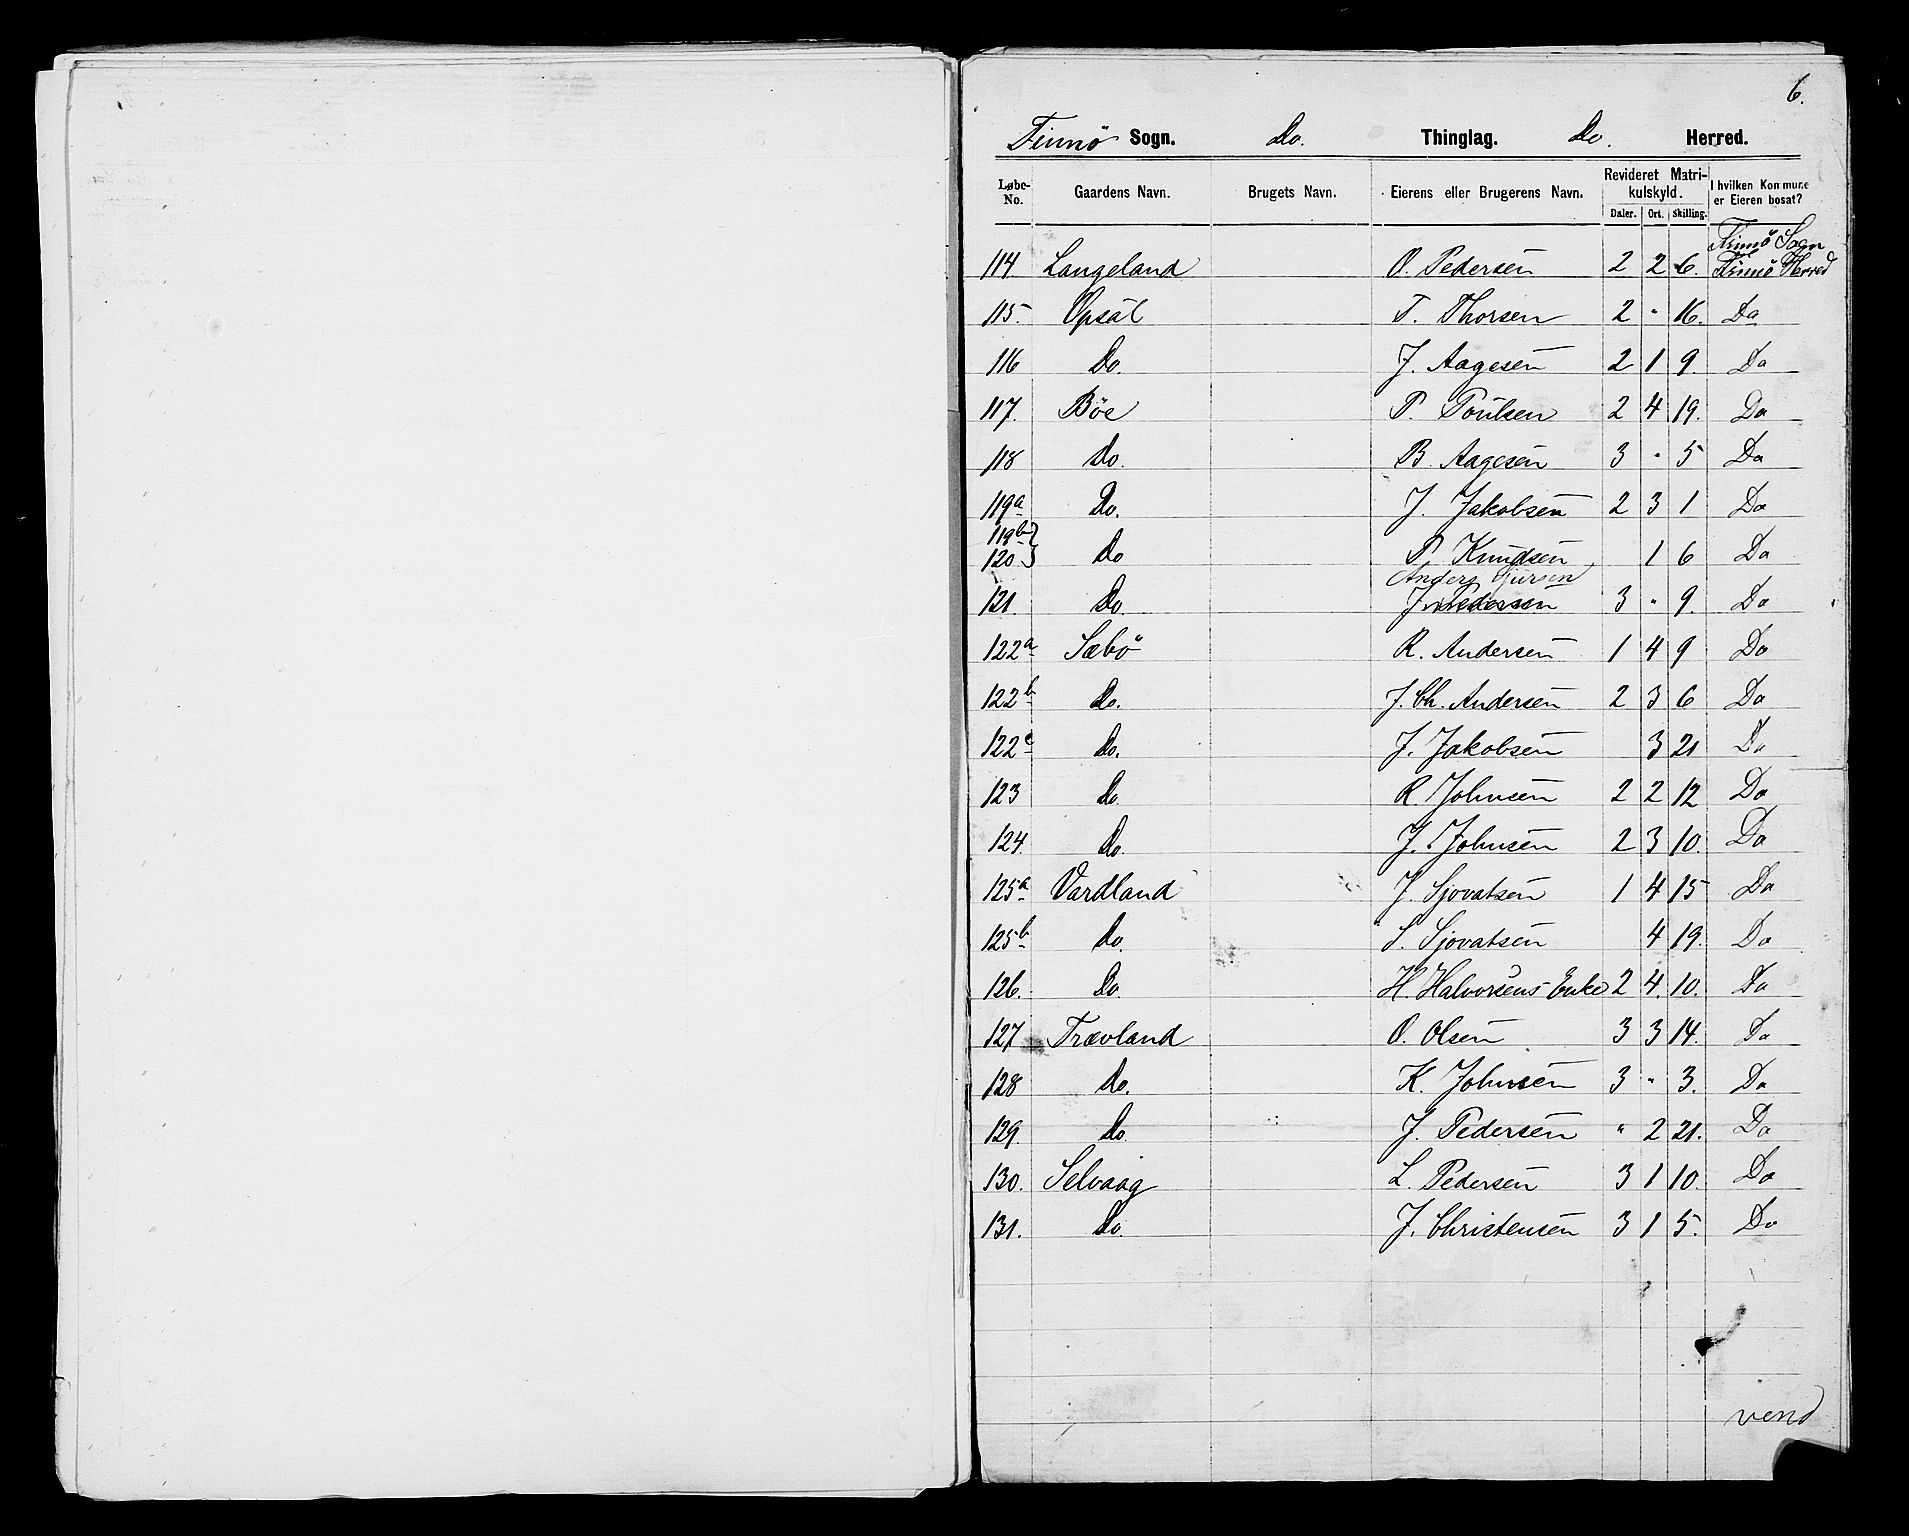 6.
Finnö Sogn. Do. Thinglag. Do. Herred.
Løbe-No. Gaardens Navn. Brugets Navn. Eierens eller Brugerens Navn. Revideret Matrikulskyld. Daler. Ort. Skilling. I hvilken Kommune er Eieren bosat?
Finnö Sogn
114. Langeland O. Pedersen 2 2 6. Finnö Herred
115. Opsal T. Thorsen 2 " 16. Do
116 Do. J. Aagesen 2 1 9. Do
117. Böe P. Poulsen 2 4 19. Do
118 Do. B. Aagesen 3 " 5 Do
119a Do. J. Jakobsen 2 3 1 Do
119b}
120 } Do P Knudsen 1 6 Do
Anders
121. Do. J. Pedersen 3 " 9. Do
122a Sæbö R. Andersen 1 4 9 Do
122b Do. J. Ch. Andersen 2 3 6 Do
122c Do. J. Jakobsen 3 21 Do
123 Do. R Johnsen 2 2 12 Do
124. Do. J. Johnsen 2 3 10. Do
125a Vardland J. Sjovatsen 1 4 15 Do
125b Do. S. Sjovatsen 4 19. Do
126. Do. H. Halvorsens Enke 2 4. 10. Do
127 Trævland O. Olsen 3 3 14. Do
128 Do. K. Johnsen 3 " 3. Do
129. Do. J. Pedersen " 2 21. Do
130. Selvaag L. Pedersen 3 1 10. Do
131. Do. J. Christensen 3 1 5. Do
vend